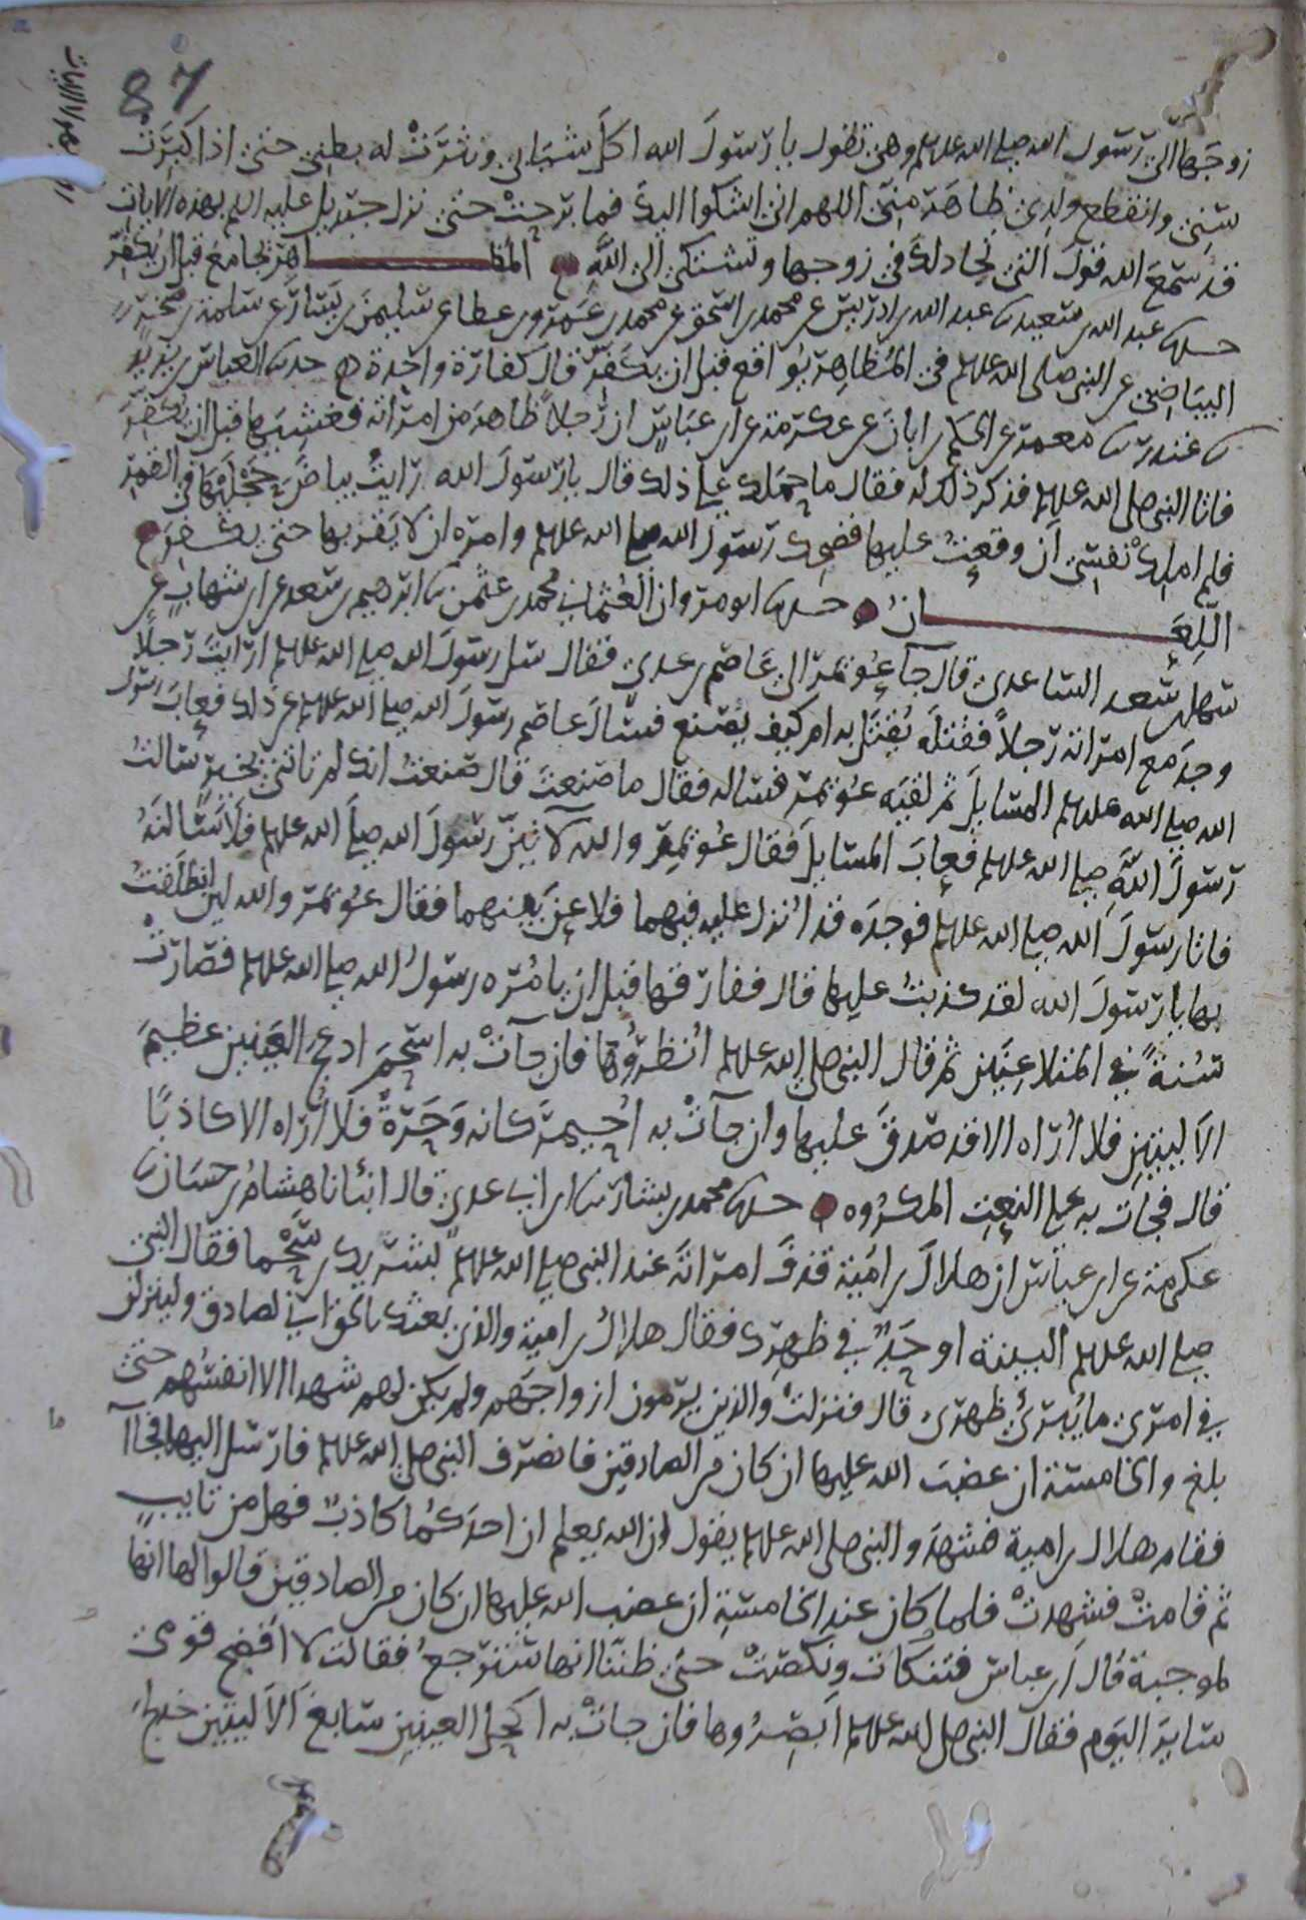 87
زوجها الى رسول الله صلى الله عليه وسلم وهي تقول يا رسول الله اكل شبابي ونثرت له بطني حتى اذا كبرت
سني وانقطع ولدي ظاهر مني اللهم اني اشكوا اليك فما برحت حتى نزل جبريل عليه السلم بهذه الايات
قد سمع الله قول التي تجادلك في زوجها وتشتكي الى الله المظاهر يجامع قبل ان يكفر
حدثنا عبد الله بن سعيد ثنا عبد الله بن ادريس عن محمد بن اسحق عن محمد بن عمرو بن عطا عن سليمن بن يسار عن سلمة بن صخر
البياضي عن النبي صلى الله عليه وسلم في المظاهر يواقع قبل ان يكفر قال كفارة واحدة حدثنا العباس بن يزيد
ثنا غندر ثنا معمر عن الحكم بن ابان عن عكرمة عن ابن عباس ان رجلا ظاهر من امراته فغشيها قبل ان يكفر
فاتا النبي صلى الله عليه وسلم فذكر ذلك له فقال ما حملك على ذلك قال يا رسول الله رايت بياض حجلها في القمر
فلم املك نفسي ان وقعت عليها فضحك رسول الله صلى الله عليه وسلم وامره ان لا يقربها حتى يكفر
اللعان حدثنا ابو مروان العثماني محمد بن عثمن ثنا ابرهيم بن سعد عن ابن شهاب عن
سهل بن سعد الساعدي قال جآ عويمر الى عاصم بن عدي فقال سل رسول الله صلى الله عليه وسلم ارايت رجلا
وجد مع امراته رجلا فقتله يقتل به ام كيف يصنع فسال عاصم رسول الله صلى الله عليه وسلم عن ذلك فعاب رسول
الله صلى الله عليه وسلم المسايل ثم لقيه عويمر فساله فقال ما صنعت قال صنعت انك لم تاتني بخير سالت
رسول الله صلى الله عليه وسلم فعاب المسايل فقال عويمر والله لآتين رسول الله صلى الله عليه وسلم فلاسالنه
فاتا رسول الله صلى الله عليه وسلم فوجده قد انزل عليه فيهما فلاعن بينهما فقال عويمر والله لين انطلقت
بها يا رسول الله لقد كذبت عليها قال ففارقها قبل ان يامره رسول الله صلى الله عليه وسلم فصارت
سنة في المتلاعنين ثم قال النبي صلى الله عليه وسلم انظروها فان جآت به اسحم ادعج العينين عظيم
الاليتين فلا اراه الا قد صدق عليها وان جآت به احيمر كانه وحرة فلا اراه الا كاذبا
قال فجآت به على النعت المكروه حدثنا محمد بن بشار ثنا ابن ابي عدي قال انبئانا هشام بن حسان ثنا
عكرمة عن ابن عباس ان هلال بن امية قذف امراته عند النبي صلى الله عليه وسلم بشريك بن سحما فقال النبي
صلى الله عليه وسلم البينة او حد في ظهرك فقال هلال بن امية والذي بعثك بالحق اني لصادق ولينزلن
في امري ما يبرئ ظهري قال فنزلت والذين يرمون ازواجهم ولم يكن لهم شهدا الا انفسهم حتى
بلغ والخامسة ان غضب الله عليها ان كان من الصادقين فانصرف النبي صلى الله عليه وسلم فارسل اليهما فجآآ
فقام هلال بن امية فشهد والنبي صلى الله عليه وسلم يقول ان الله يعلم ان احدكما كاذب فهل من تايب
ثم قامت فشهدت فلما كان عند الخامسة ان غضب الله عليها ان كان من الصادقين قالوا لها انها
لموجبة قال ابن عباس فتلكات ونكصت حتى ظننا انها سترجع فقالت لا افضح قومي
ساير اليوم فقال النبي صلى الله عليه وسلم ابصروها فان جآت به اكحل العينين سابغ الاليتين خدلج